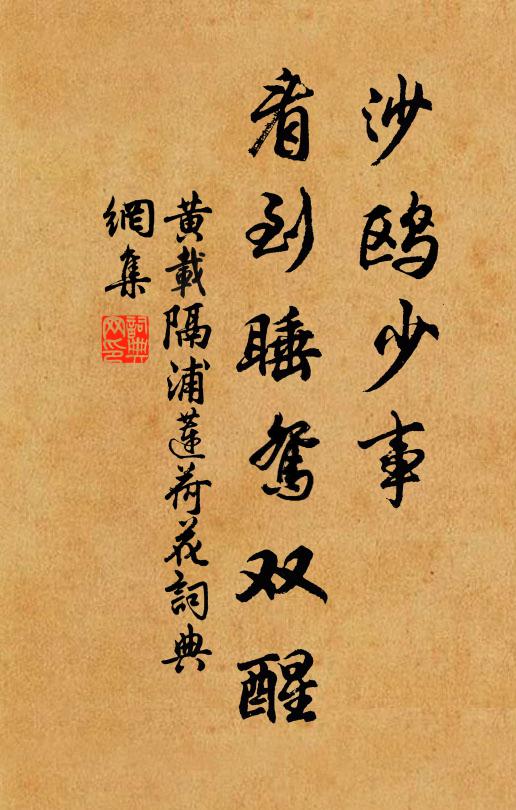 沙鸥少事
看到睡鸳双醒
黄載隔浦蓮荷花詞典
網集
詞典
网印